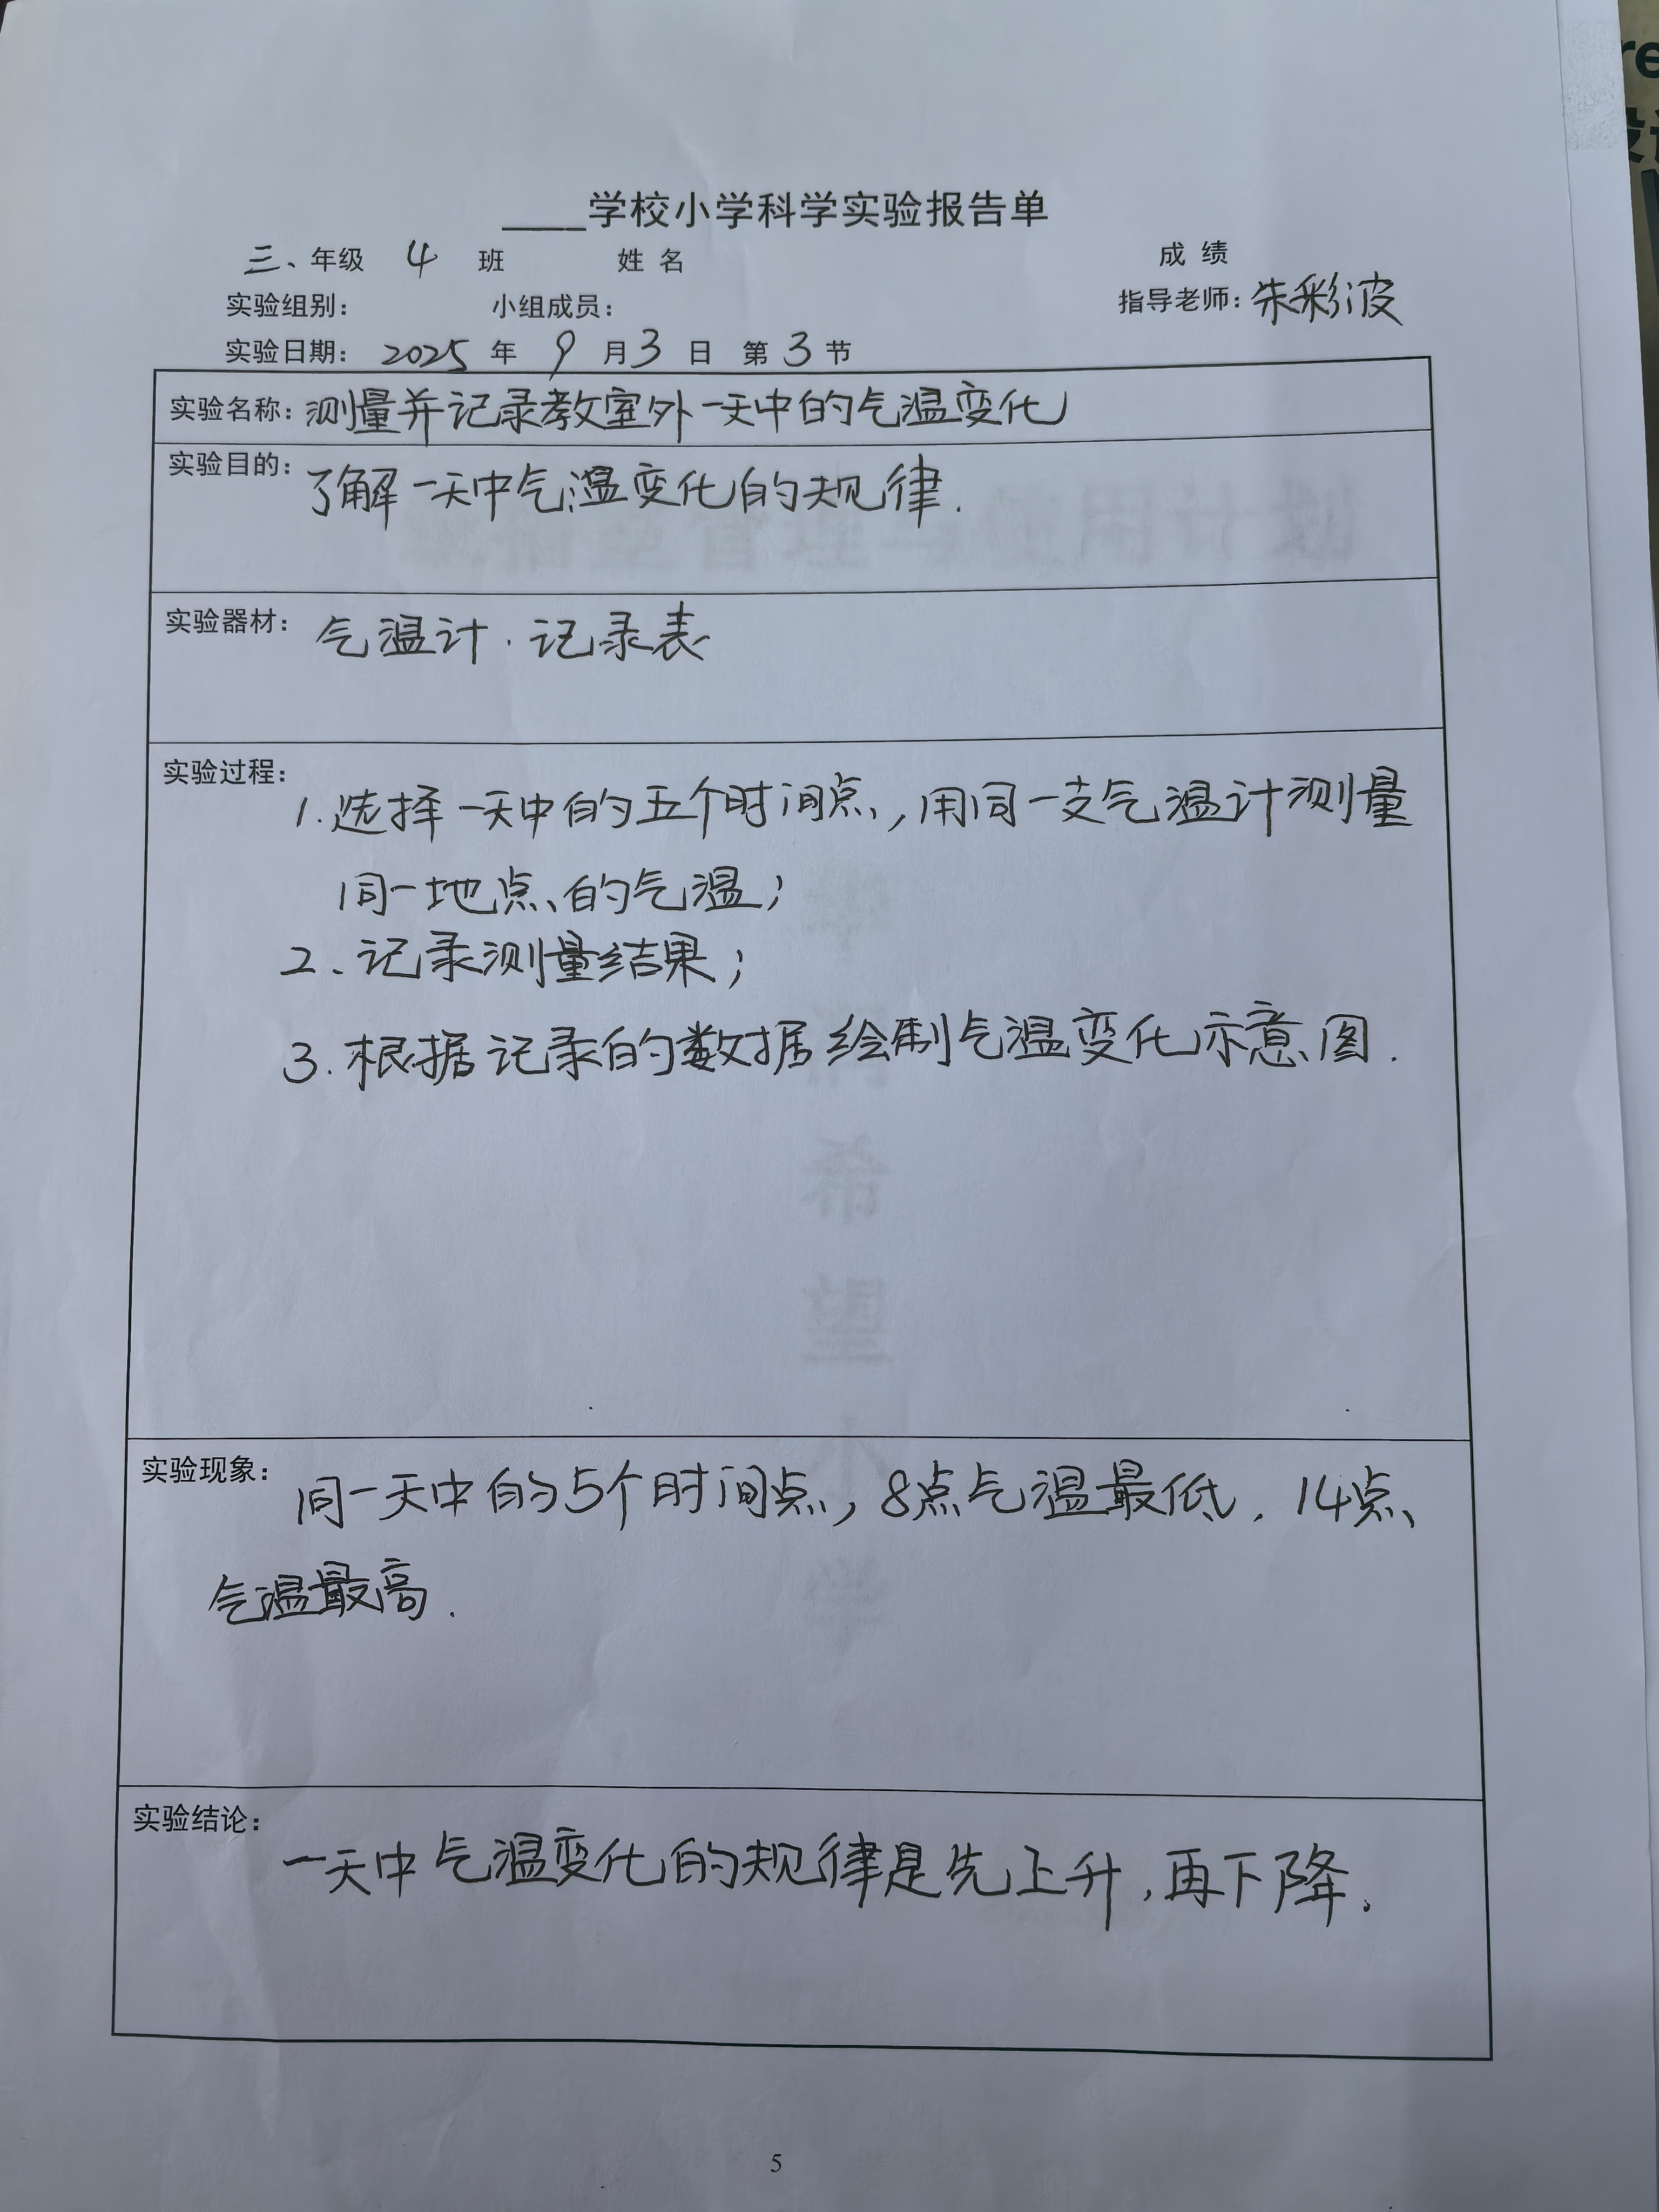 ____学校小学科学实验报告单
三、年级 4 班 姓 名 成 绩
实验组别： 小组成员： 指导老师：朱彩波
实验日期： 2025 年 9 月 3 日 第 3 节
实验名称：测量并记录教室外一天中的气温变化
实验目的：了解一天中气温变化的规律.
实验器材：气温计.记录表
实验过程：
1.选择一天中的五个时间点,用同一支气温计测量
同一地点的气温;
2、记录测量结果;
3.根据记录的数据绘制气温变化示意图.
实验现象：同一天中的5个时间点,8点气温最低.14点
气温最高.
实验结论：
一天中气温变化的规律是先上升,再下降.
5
re